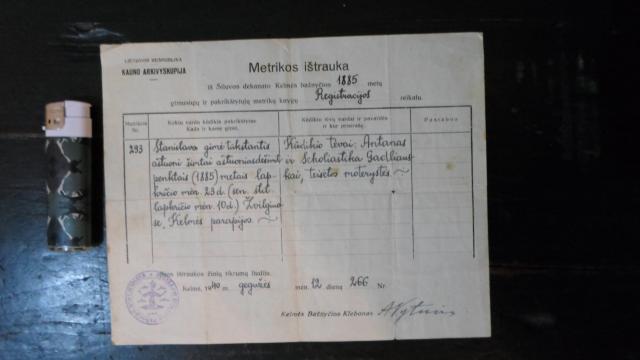 LIETUVOS RESPUBLIKA
KAUNO ARKIVYSKUPIJA
Metrikos ištrauka
iš Šiluvos dekanato Kelmės bažnyčios 1885 metų
gimusiųjų ir pakrikštytųjų metrikų knygų Registracijos reikalu.
Metrikos Nr.
Kokiu vardu kūdikis pakrikštytas Kada ir kame gimė.
Kūdikio tėvų vardai ir pavardės ir kur prirašyti.
Pastabos
293
Stanislava gimė tūkstantis
aštuoni šimtai aštuoniasdešimt
penktais (1885) metais lap-
kričio mėn. 23 d. (sen. stil.
lapkričio mėn. 10 d.) Žvilgiuo-
se, Kelmės parapijos.
Kūdikio tėvai: Antanas
ir Scholiastika
kai, teisėtos moterystės.
Šios ištraukos žinių tikrumą liudiju.
Kelmė, 1940 m. gegužės mėn. 12 dieną 266 Nr.
Kelmės Bažnyčios Klebonas